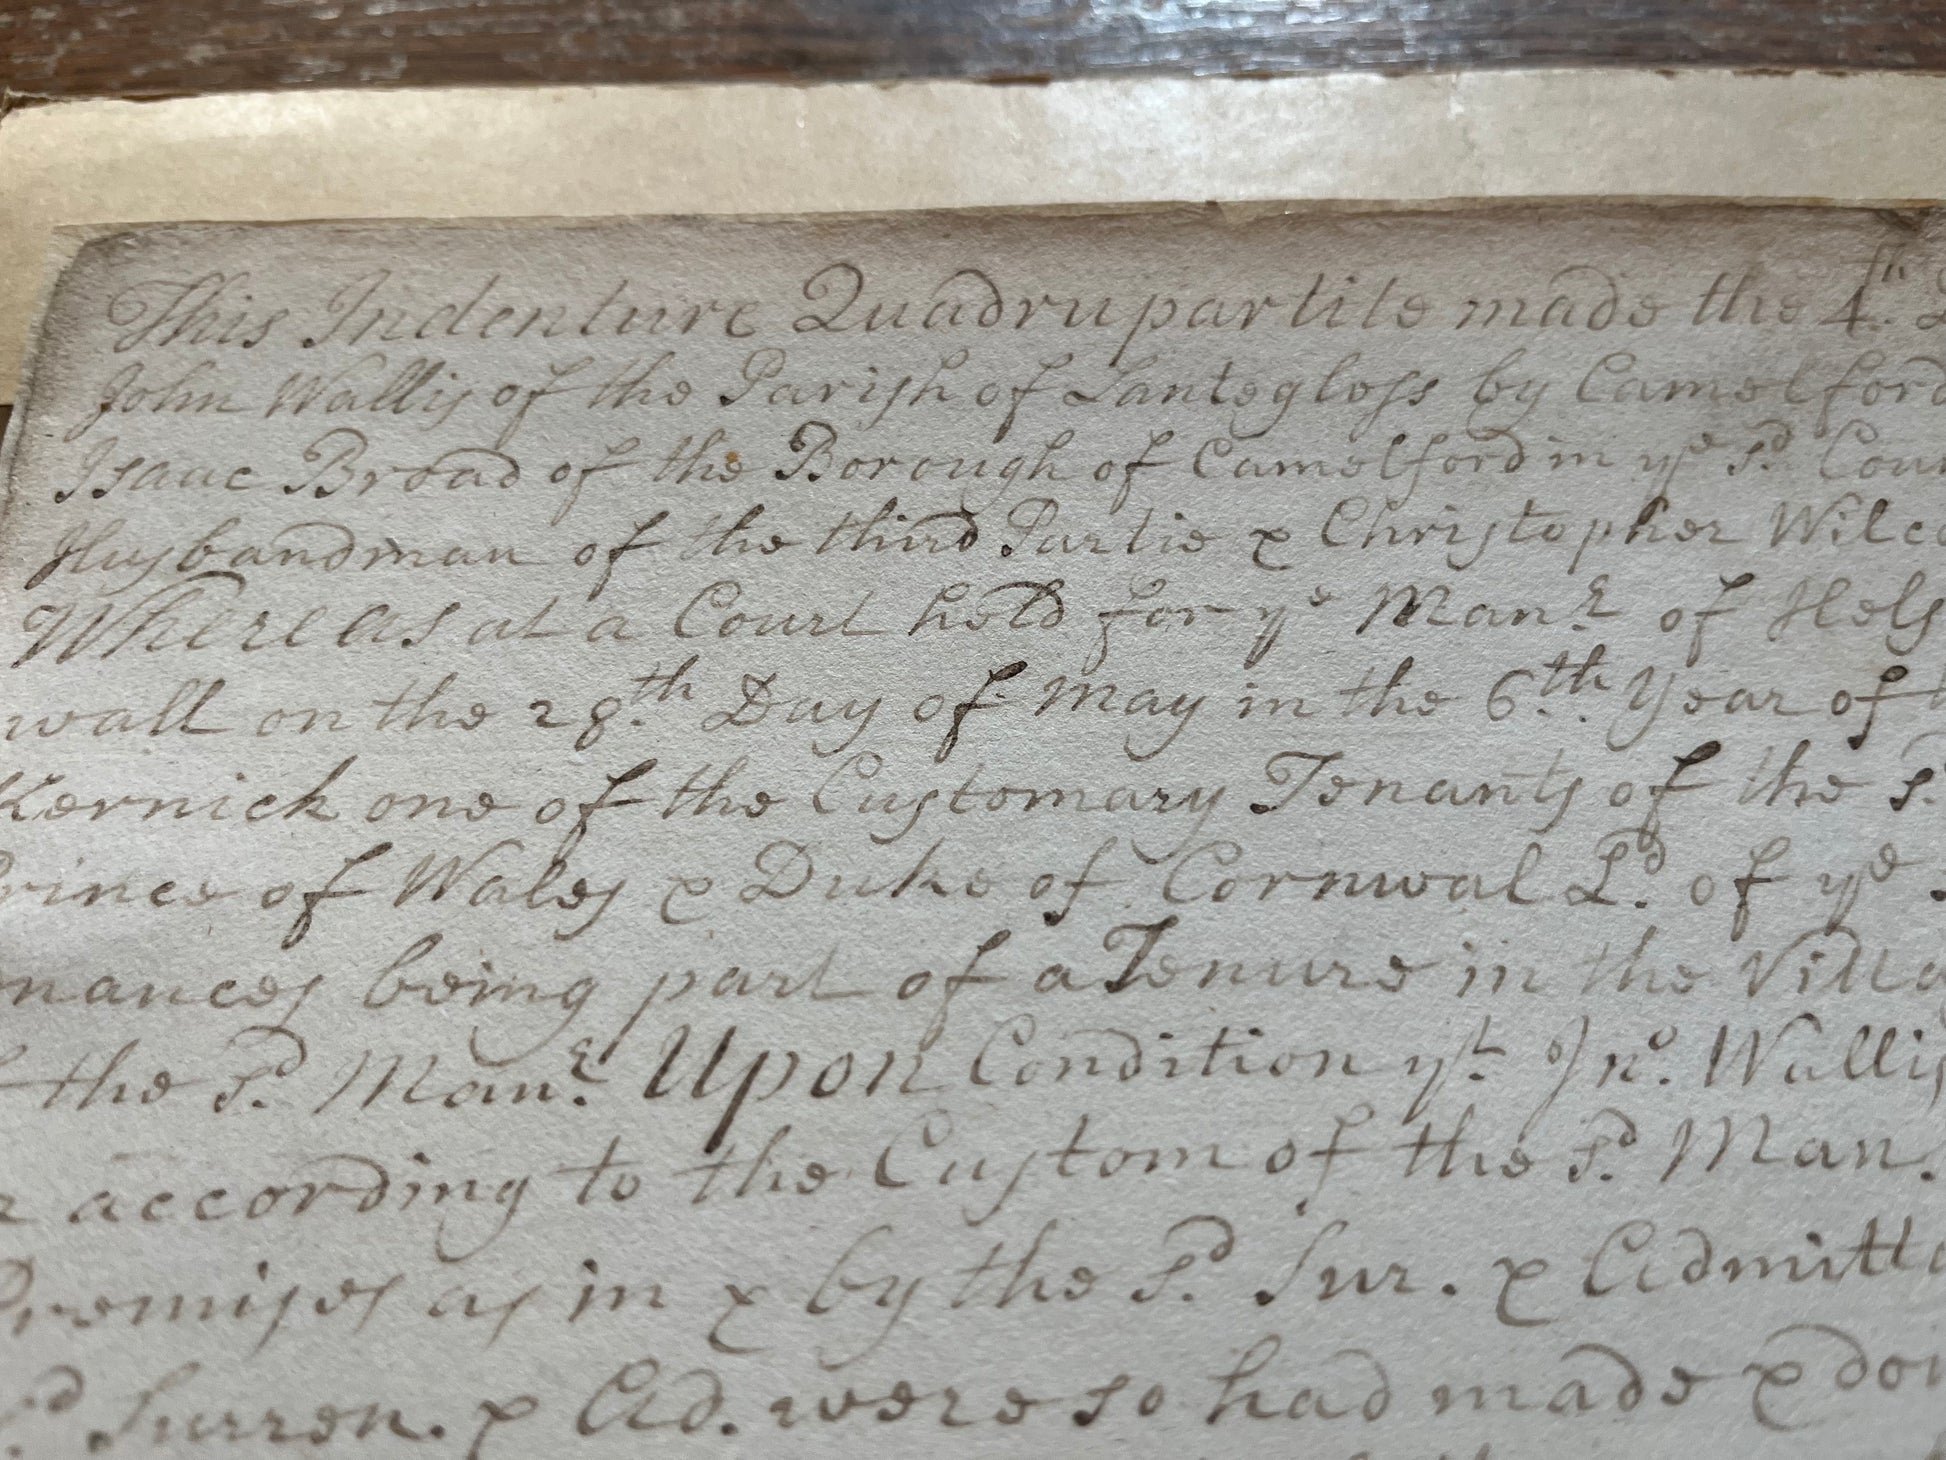 This Indenture Quadrupartite made the 4th
John Wallis of the Parish of Lantegloss by Camelford
Isaac Broad of the Borough of Camelford in ye sd. Coun
Husbandman of the third Partie & Christopher Wilco
Whereas at a Court held for ye Manr. of Hels
wall on the 28th Day of May in the 6th Year of
Kernick one of the Customary Tenants of the s
Prince of Wales & Duke of Cornwal Ld. of ye
nances being part of a Tenure in the Villa
the sd. Manr. Upon Condition yt. Jno. Wallis
according to the Custom of the sd. Man.
Premises as in & by the sd. Sur. & Admitta
sd. Surren. & Ad. were so had made & don